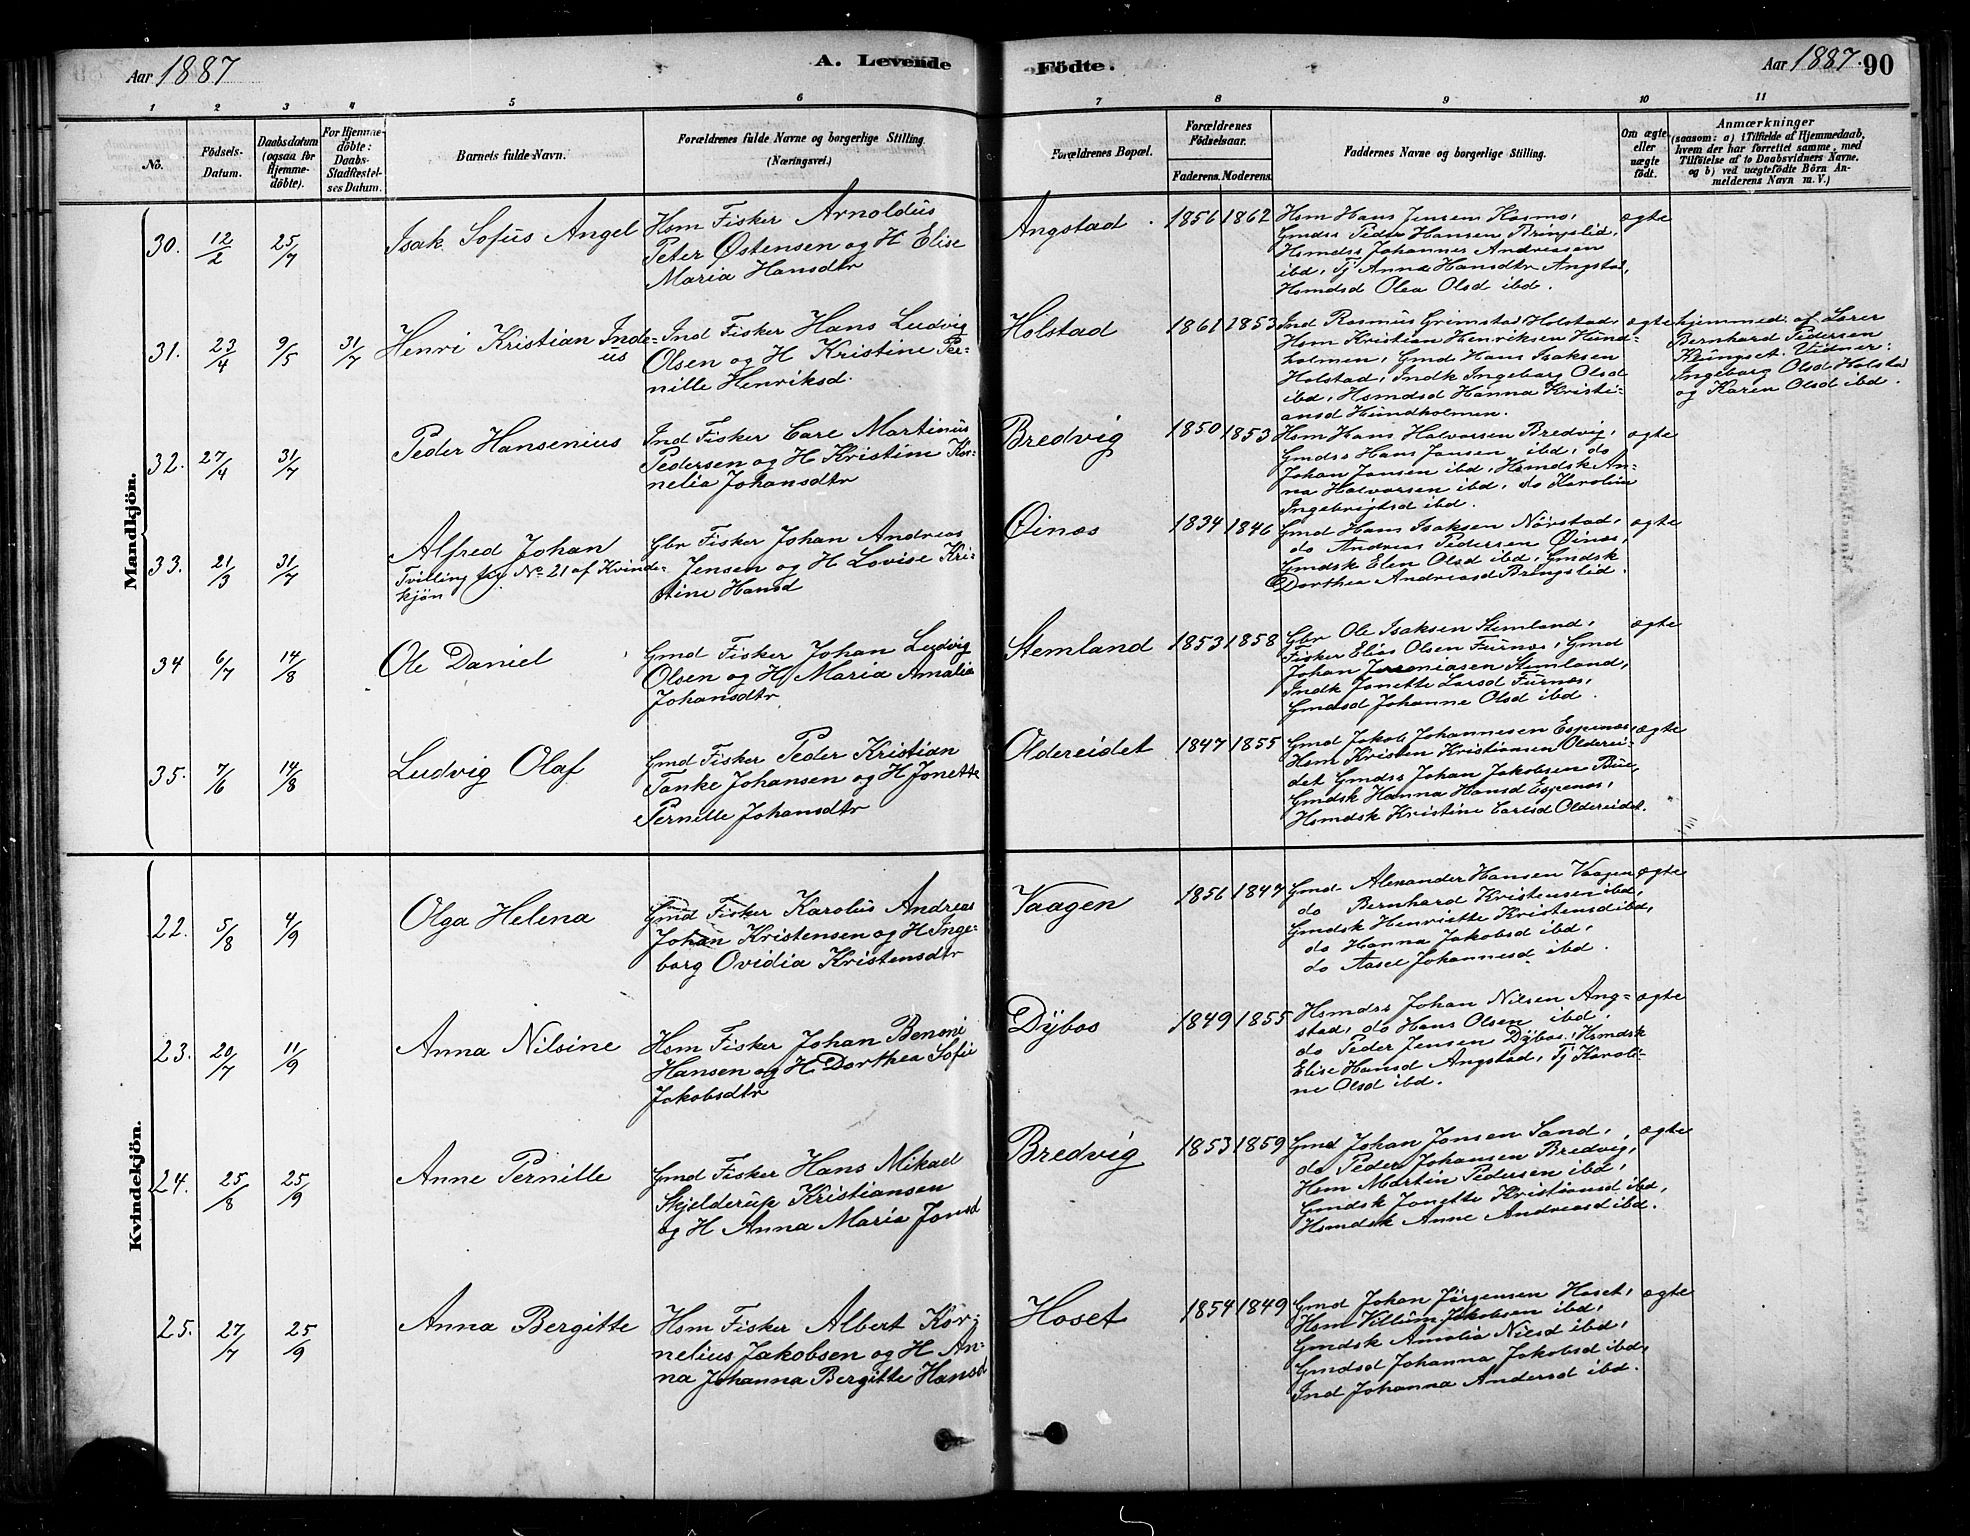 Aar 1887
A. Levende
Födte.
Aar 1887. 90
1 2 3 4 5 6 7 8 9 10 11
No.
Födsels-
Datum.
Daabsdatum
(ogsaa for
Hjemme-
döbte).
For Hjemme-
döbte:
Daabs-
Stadfæstel-
ses Datum.
Barnets fulde Navn.
Forældrenes fulde Navne og borgerlige Stilling
(Næringsvei.)
Forældrenes Bopæl.
Forældrenes
Födselsaar.
Faderens. Moderens.
Faddernes Navne og borgerlige Stilling.
Om ægte
eller
uægte
födt.
Anmærkninger
(saasom: a) i Tilfælde af Hjemmedaab,
hvem der har forrettet samme, med
Tilföielse af to Daabsvidners Navne.
og b) ved uægtefödte Börn An-
melderens Navn m. V.)
Mandkjön.
30. 12/2 25/7
Isak Sofus Angel
Hsm Fisker Arnoldus
Peter Østensen og H Elise
Maria Hansdtr
Angstad . 1856 1862
Hsm Hans Jensen Kosmo,
Gmdss Peder Hansen Bringslid,
Hsmdss Johannes Andreassen
ibd, Tj Anna Hansdtr Angstad,
Hsmdsd Olea Olsd ibd.
ægte
31. 23/4 9/5 31/7
Henri Kristian Inde-
us
Ind Fisker Hans Ludvig
Olsen og H Kristine Per-
nille Henriksd.
Holstad 1861 1853
Ind Rasmus Grimstad Holstad,
Hsm Kristian Henriksen Hund-
holmen, Gmd Hans Isaksen
Holstad, Indk Ingeborg Olsd
ibd, Hsmdsd Hanna Kristi-
ansd Hundholmen.
ægte
hjemmed. af Lærer
Bernhard Pedersen
Klungset. Vidner:
Ingeborg Olsd Holstad
og Karen Olsd ibd.
32. 27/4 31/7
Peder Hansenius
Ind Fisker Carl Martinus
Pedersen og H Kristine Kor-
nelia Johansdtr
Bredvig 1850 1853
Hsm Hans Halvorsen Bredvig,
Gmdss Hans Jansen ibd, do
Johan Jansen ibd, Hsmdsk An-
na Halvorsen ibd, do Karolina
Ingebrigtsd ibd.
ægte
33. 21/3 31/7
Alfred Johan
Tvilling til No 21 af Kvinde-
kjön
Gbr Fisker Johan Andreas
Jensen og H Lovise Kri-
stine Hansd
Øines 1834 1846
Gmd Hans Isaksen Nörstad,
do Andreas Pedersen Øines,
Gmdsk Elen Olsd ibd, Gmdsk
Dorthea Andreasd Bringslid.
ægte
34 6/7 14/8
Ole Daniel
Gmd Fisker Johan Ludvig
Olsen og H Maria Amalia
Johansdtr
Stemland 1853 1858
Gbr Ole Isaksen Stemland,
Fisker Elias Olsen Furnes, Gmd
Johan Jeremiasen Stemland,
Indk Jonette Larsd Furnes,
Gmdsd Johanne Olsd ibd.
ægte
35. 7/6 14/8
Ludvig Olaf
Gmd Fisker Peder Kristian
Tanke Johansen og H Jonette
Pernille Johansdtr
Oldereidet 1847 1855
Gmd Jakob Johannesen Espenes,
Hsm Kristen Kristiansen Olderei-
det Gmdss Johan Jakobsen Bue,
Gmdsk Hanna Hansd Espenes,
Hsmdsk Kristine Carlsd Oldereidet.
ægte
Kvindekjön.
22. 5/8 4/9
Olga Helena
Gmd Fisker Karolus Andreas
Johan Kristensen og H Inge-
borg Ovidia Kristensdtr
Vaagen 1856 1847
Gmd Alexander Hansen Vaagen
do Bernhard Kristensen ibd,
Gmdsk Henriette Kristensd ibd,
do Hanna Jakobsd ibd,
do Aasel Johannesd ibd.
ægte
23. 20/7 11/9
Anna Nilsine
Hsm Fisker Johan Benoni
Hansen og H Dorthea Sofie
Jakobsdtr
Dybos 1849 1855
Hsmdss Johan Nilsen Ang-
stad, do Hans Olsen ibd,
do Peder Jensen Dybos, Hsmdsk
Elise Hansd Angstad, Tj Karoli-
ne Olsd ibd.
ægte
24. 25/8 25/9
Anne Pernille
Gmd Fisker Hans Mikael
Skjelderup Kristiansen
og H Anna Maria Jonsd
Bredvig 1853 1859
Gmd Johan Jonsen Sand,
do Peder Johansen Bredvig,
Hsm Martin Pedersen ibd,
Gmdsk Jonette Kristiansd ibd,
Hsmdsk Anne Andreasd ibd.
ægte
25. 27/7 25/9
Anna Bergitte
Hsm Fisker Albert Kor-
nelius Jakobsen og H An-
na Johanna Bergitte Hansd
Hoset 1854 1849
Gmd Johan Jörgensen Hoset,
Hsm Villum Jakobsen ibd,
Gmdsk Amalia Nilsd ibd,
Gmdsd Johanna Jakobsd ibd,
Ind Johanna Andersd ibd.
ægte